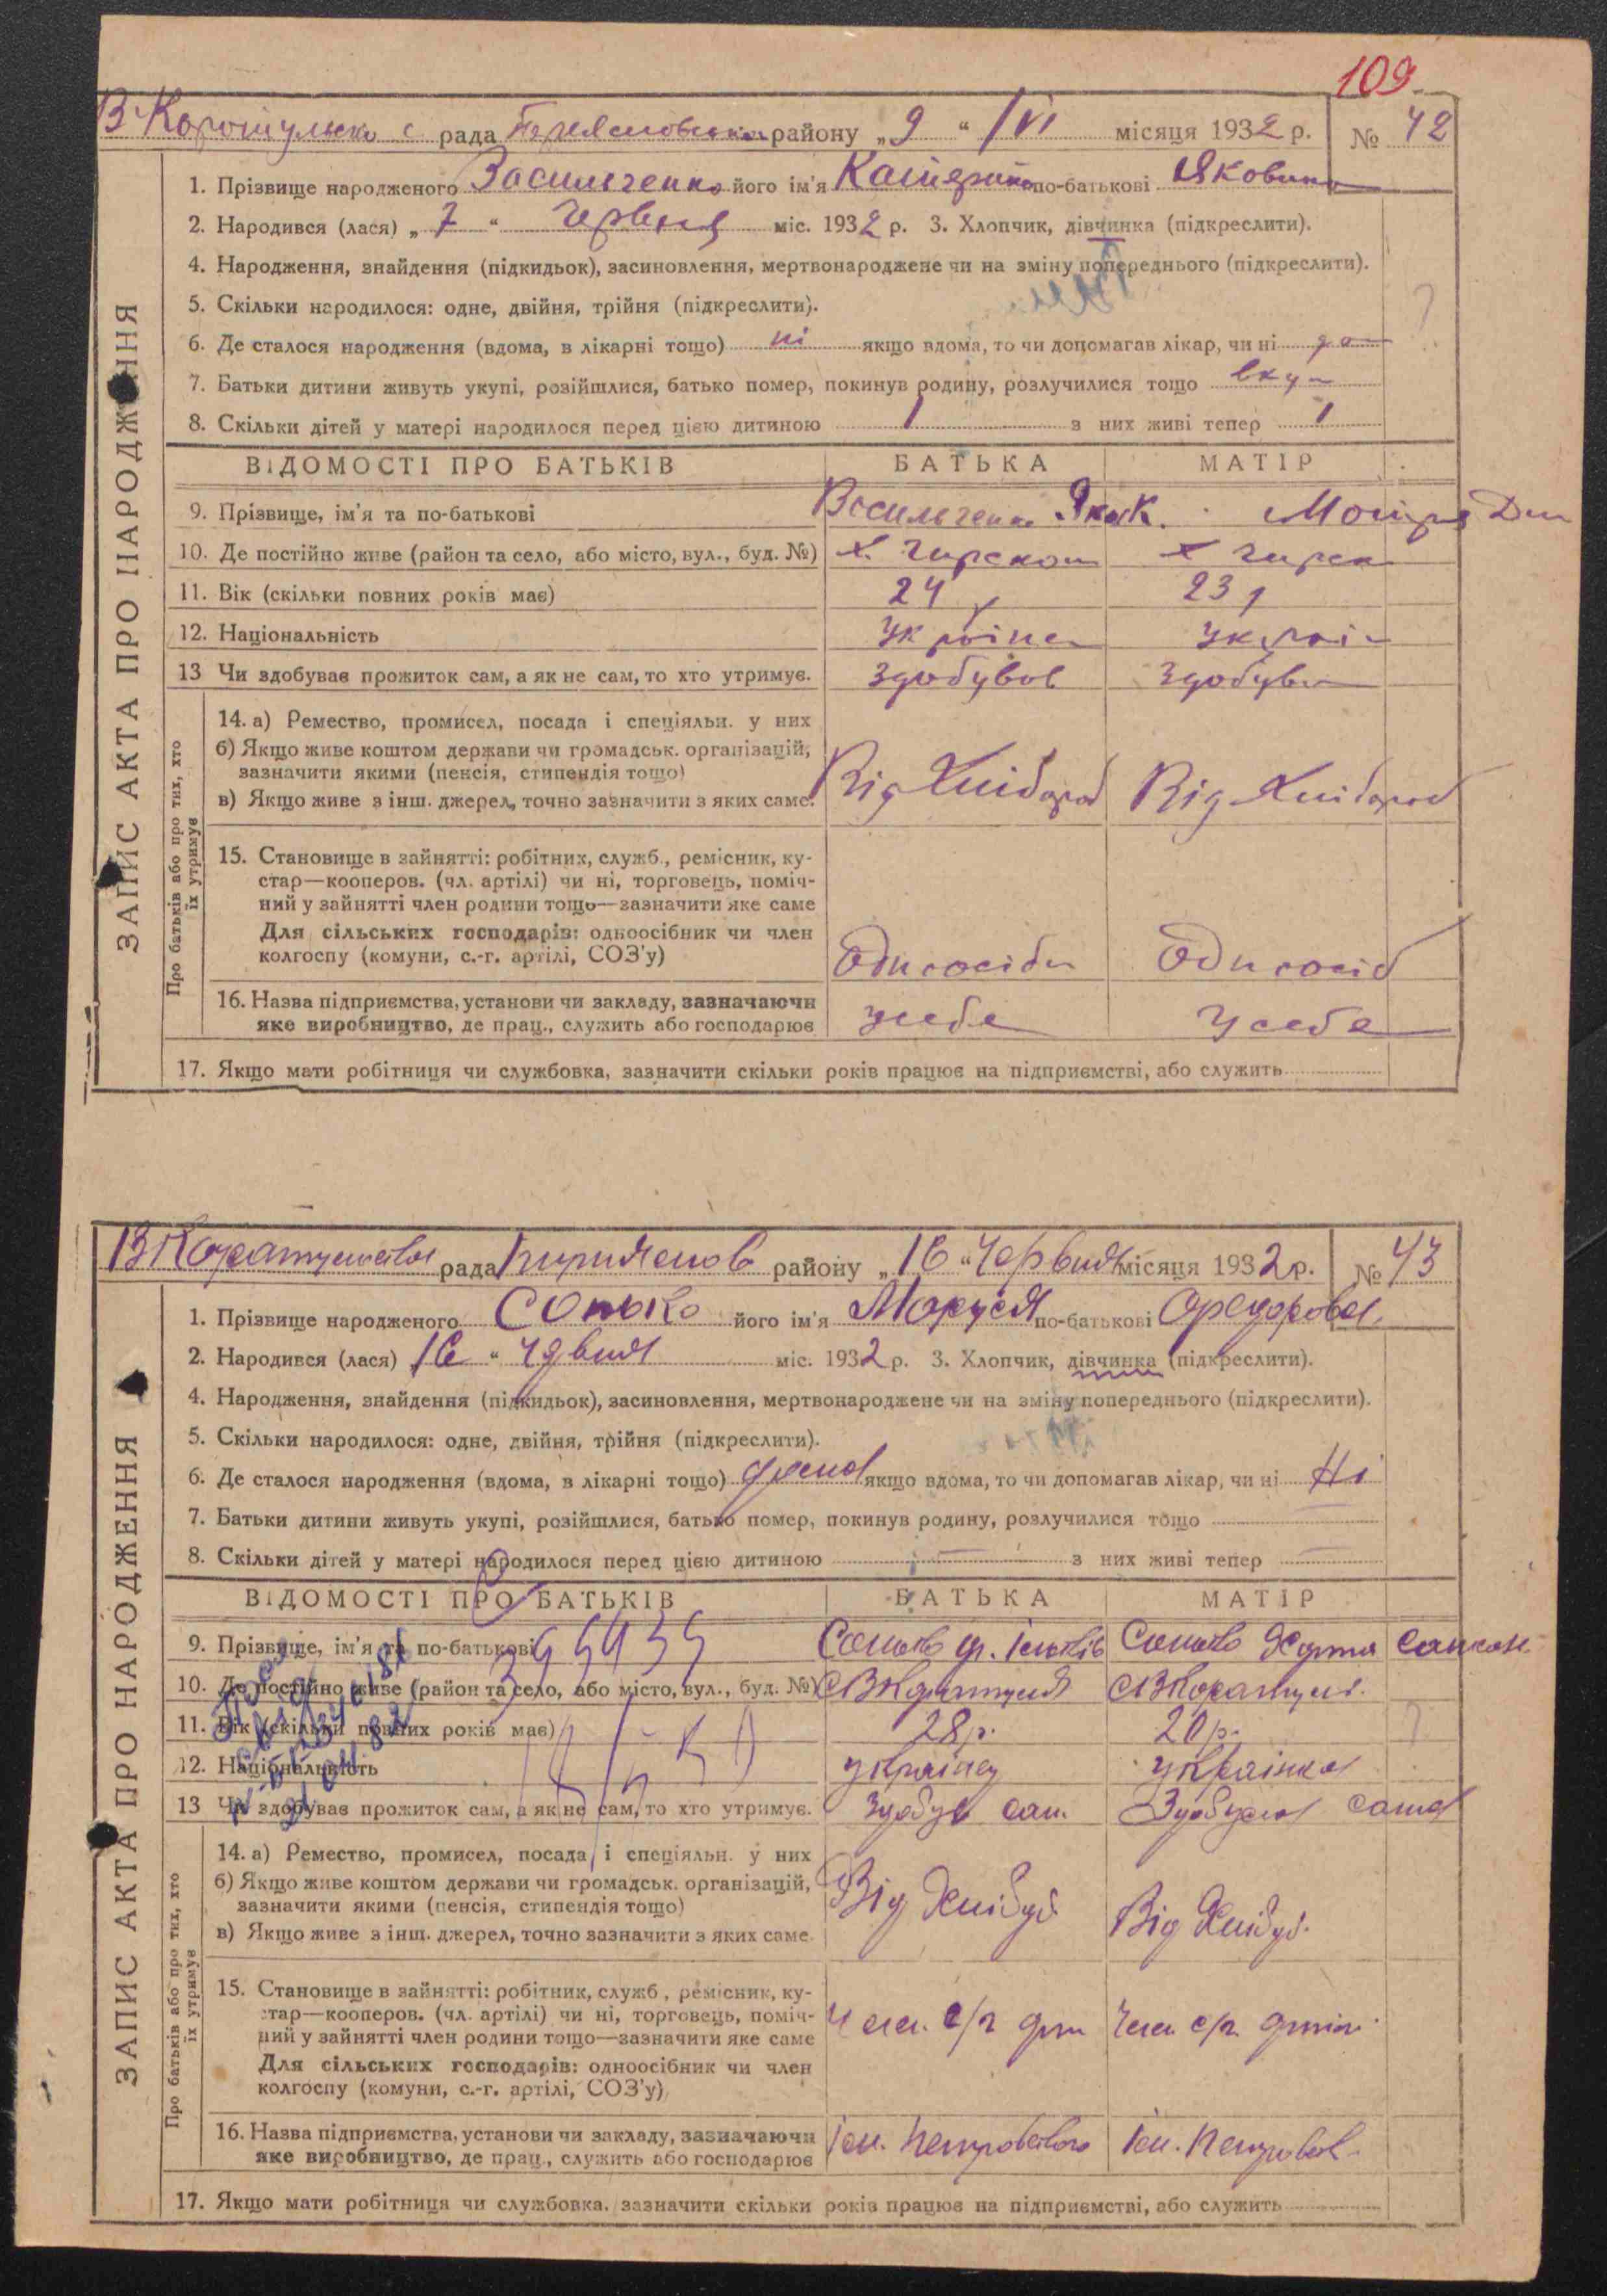 109
В Каратульська с рада Переяславського району „ 9 “ /VI місяця 1932 р. № 42
1. Прізвище народженого Васильченко його ім'я Катерина по-батькові Яковівна
2. Народився (лася) „ 7 “ червня міс. 1932 р. 3. Хлопчик, дівчинка (підкреслити).
4. Народження, знайдення (підкидьок), засиновлення, мертвонароджене чи на зміну попереднього (підкреслити).
5. Скільки народилося: одне, двійня, трійня (підкреслити).
6. Де сталося народження (вдома, в лікарні тощо) ні якщо вдома, то чи допомагав лікар, чи ні
7. Батьки дитини живуть укупі, розійшлися, батько помер, покинув родину, розлучилися тощо вку
8. Скільки дітей у матері народилося перед цією дитиною 1 з них живі тепер 1
ВІДОМОСТІ ПРО БАТЬКІВ БАТЬКА МАТІР
9. Прізвище, ім'я та по-батькові Васильченко Яків К. Мотря Дем
10. Де постійно живе (район та село, або місто, вул., буд. №) х. Чирско х Чирск
11. Вік (скільки повних років має) 24 23
12. Національність Україне Украї
13 Чи здобував прожиток сам, а як не сам, то хто утримує. здобував здобува
14. а) Ремество, промисел, посада і спеціяльн. у них
б) Якщо живе коштом держави чи громадськ. організацій,
зазначити якими (пенсія, стипендія тощо)
в) Якщо живе з інш. джерел, точно зазначити з яких саме. Від Хлібороб Від Хлібороб
15. Становище в зайнятті: робітник, служб., ремісник, ку-
стар—кооперов. (чл. артілі) чи ні, торговець, поміч-
ний у зайнятті член родини тощо—зазначити яке саме
Для сільських господарів: одноосібник чи член
колгоспу (комуни, с.-г. артілі, СОЗ'у) Одноосібн Одноосіб
16. Назва підприємства, установи чи закладу, зазначаючи
яке виробництво, де прац., служить або господарює у себе у себе
17. Якщо мати робітниця чи службовка, зазначити скільки років працює на підприємстві, або служить
ЗАПИС АКТА ПРО НАРОДЖЕННЯ
Про батьків або про тих, хто їх утримує
В Каратульська рада району „ 16 “ Червня місяця 1932 р. № 43
1. Прізвище народженого Сонько його ім'я Маруся по-батькові Федоровна
2. Народився (лася) 16 “ червня міс. 1932 р. 3. Хлопчик, дівчинка (підкреслити).
4. Народження, знайдення (підкидьок), засиновлення, мертвонароджене чи на зміну попереднього (підкреслити).
5. Скільки народилося: одне, двійня, трійня (підкреслити).
6. Де сталося народження (вдома, в лікарні тощо) дома якщо вдома, то чи допомагав лікар, чи ні Ні
7. Батьки дитини живуть укупі, розійшлися, батько помер, покинув родину, розлучилися тощо —
8. Скільки дітей у матері народилося перед цією дитиною — з них живі тепер —
ВІДОМОСТІ ПРО БАТЬКІВ БАТЬКА МАТІР
9. Прізвище, ім'я та по-батькові Сонько Ф. Ількові Сонько
10. Де постійно живе (район та село, або місто, вул., буд. №) с В Каратуля с В Каратуля
11. Вік (скільки повних років має) 28 р. 20 р.
12. Національність україну українка
13 Чи здобував прожиток сам, а як не сам, то хто утримує. Здобув сам. Здобула сама
14. а) Ремество, промисел, посада і спеціяльн. у них
б) Якщо живе коштом держави чи громадськ. організацій,
зазначити якими (пенсія, стипендія тощо)
в) Якщо живе з інш. джерел, точно зазначити з яких саме. Від Від
15. Становище в зайнятті: робітник, служб., ремісник, ку-
стар—кооперов. (чл. артілі) чи ні, торговець, поміч-
ний у зайнятті член родини тощо—зазначити яке саме
Для сільських господарів: одноосібник чи член
колгоспу (комуни, с.-г. артілі, СОЗ'у) Член с/г арт Член с/г. артіл.
16. Назва підприємства, установи чи закладу, зазначаючи
яке виробництво, де прац., служить або господарює Ім. Петровського Ім. Петровськ.
17. Якщо мати робітниця чи службовка, зазначити скільки років працює на підприємстві, або служить
ЗАПИС АКТА ПРО НАРОДЖЕННЯ
Про батьків або про тих, хто їх утримує